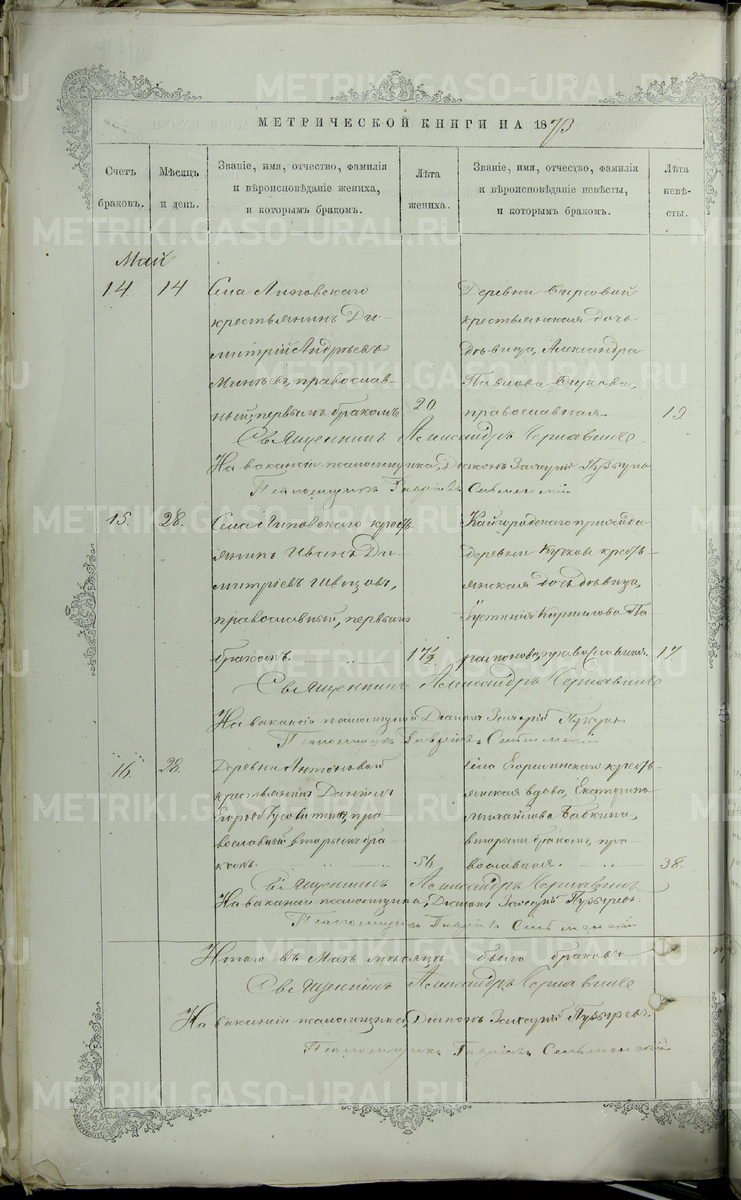 МЕТРИЧЕСКОЙ КНИГИ НА 1873
Счетъ браковъ.
Мѣсяцъ и день.
Званіе, имя, отчество, фамилія
и вѣроисповѣданіе жениха,
и которымъ бракомъ.
Лѣта жениха.
Званіе, имя, отчество, фамилія
и вѣроисповѣданіе невѣсты,
и которымъ бракомъ.
Лѣта невѣсты.
Май
14 14 Села Липовскаго
крестьянинъ Ди-
митрій Андреевъ
Минѣевъ, православ-
ный, первымъ бракомъ 20.
Деревни Бирсовой
крестьянская дочь
дѣвица, Александра
Павлова
православная 19
Священникъ Александръ
На вакансіи псаломщика, Діаконъ Захарій Пузыревъ
Псаломщикъ Гавріилъ
15. 28. Села Липовскаго кресть-
янинъ Иванъ Ди-
митріевъ Швецовъ,
православный, первымъ
бракомъ. 17½
Кайгородскаго прихода
деревни кресть-
янская дочь дѣвица,
Кирилова Па-
православная. 17.
Священникъ Александръ
На вакансіи псаломщика Діаконъ Захарій Пузыревъ
Псаломщикъ Гавріилъ
16. 28. Деревни Антоновой
крестьянинъ Даніилъ
пра-
вославный вторымъ бра-
комъ. 56.
Села Егоршинскаго кресть-
янская вдова, Екатерина
Михайлова Бабкина,
вторымъ бракомъ, пра-
вославная. 38.
Священникъ Александръ
На вакансіи псаломщика, Діаконъ Захарій Пузыревъ
Псаломщикъ Гавріилъ
Итого въ Маѣ мѣсяцѣ было браковъ
Священникъ Александръ
На вакансіи псаломщика, Діаконъ Захарій Пузыревъ
Псаломщикъ Гавріилъ
METRIKI.GASO-URAL.RU